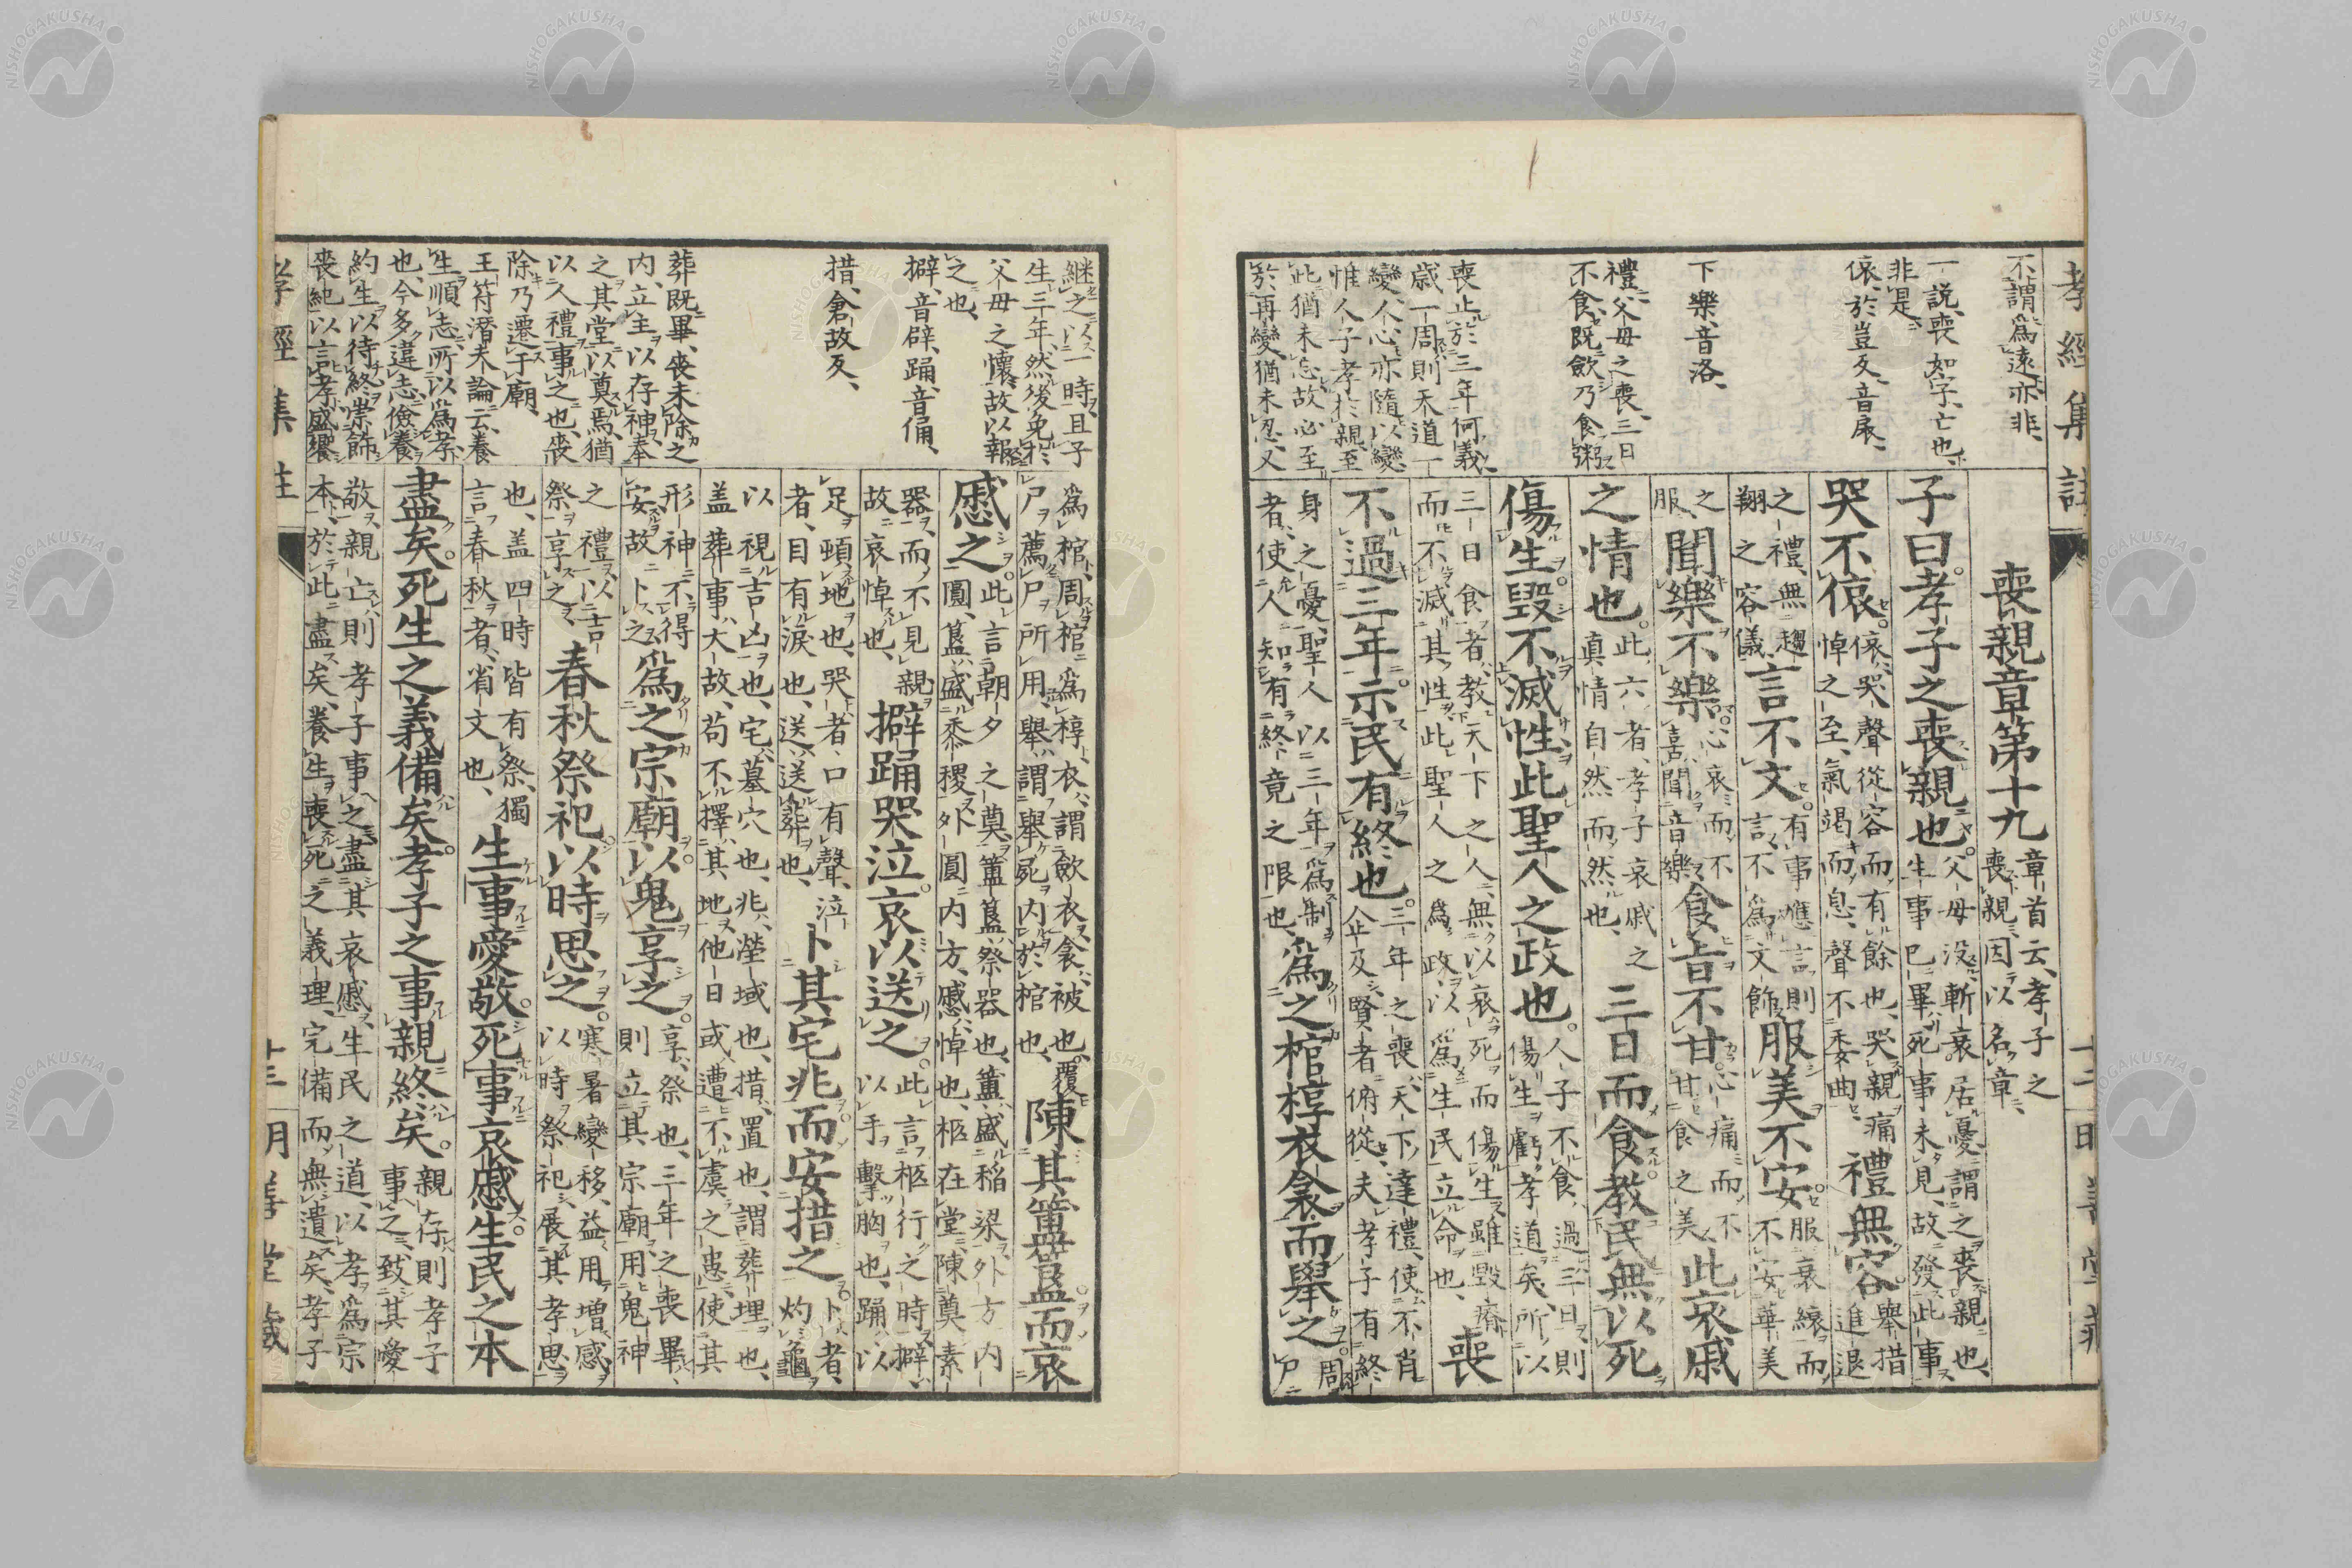 孝經集註 十二 明善堂藏
不謂爲遠亦非、
一説、喪如字、亡也、
非是、
偯、於豈反、音扆、
下樂、音洛、
禮、父母之喪、三日
不食、既歛乃食粥
喪止於三年何義
歳一周則天道一
變人心亦隨以變
惟人子孝於親至
此猶未忘故必至
於再變猶未忍又
喪親章第十九
章首云、孝子之
喪親、因以名章、
子曰孝子之喪親也
父母没、斬衰居憂、謂之喪親也、
生事已畢、死事未見、故發此事
哭不偯
偯、哭聲從容而有餘也、哭親痛
悼之至、氣竭而息、聲不委曲
禮無容
舉措進退
之禮、無趨
翔之容儀、
言不文
有事應言、則
言不爲文飾
服美不安
服衰縗而
不安華美
之服、
聞樂不樂
心哀而不
喜聞音樂
食旨不甘
心痛而不
甘食之美
此哀戚
之情也
此六者、孝子哀戚之
真情自然而然也、
三日而食教民無以死
傷生毀不滅性此聖人之政也
人子不食、過三日、則
傷生虧孝道矣、所以
三日食者、教天下之人、無以哀死而傷生、雖毀瘠
而不滅其性、此聖人之爲政、以爲生民立命也、
喪
不過三年示民有終也
三年之喪、天下達禮、使不肖
企及、賢者俯從、夫孝子有終
身之憂、聖人以三年爲制
者、使人知有終竟之限也、
爲之棺椁衣衾而舉之
周
尸
継之以一時、且子
生三年、然後免於
父母之懷、故以報
之也、
擗、音辟、踊、音俑、
措、倉故反、
葬既畢、喪未除之
内、立主以存神、奉
之其堂以奠焉、猶
以人禮事之也、喪
除乃遷于廟、
王符潛夫論云、養
生順志、所以爲孝
也、今多違志、儉養
約生以待終、崇飾
喪紀以言孝、盛饗
爲棺、周棺爲椁、衣、謂歛衣、衾、被也、覆
尸薦尸所用、舉、謂舉屍内於棺也、
陳其簠簋而哀
慼之
此言朝夕之奠、簠簋、祭器也、簠、盛稲梁、外方内
圓、簋、盛黍稷、外圓内方、慼、悼也、柩在堂、陳奠素
器、而不見親
故哀悼也、
擗踊哭泣哀以送之
此言柩行之時、擗、
以手擊胸也、踊、以
足頓地也、哭者、口有聲、泣
者、目有淚也、送、送葬也、
卜其宅兆而安措之
卜者、
灼龜
以視吉凶也、宅、墓穴也、兆、塋域也、措、置也、謂葬埋也、
盖葬事大故、苟不擇其地、他日或遭不虞之患、使其
形神不得
安、故卜之
爲之宗廟以鬼享之
享、祭也、三年之喪畢、
則立其宗廟、用鬼神
之禮、以吉
祭享之
春秋祭祀以時思之
寒暑變移、益用増感、
以時祭祀、展其孝思
也、盖四時皆有祭、獨
言春秋者、省文也、
生事愛敬死事哀慼生民之本
盡矣死生之義備矣孝子之事親終矣
親存、則孝子
事之、致其愛
敬、親亡、則孝子事之、盡其哀慼、生民之道、以孝爲宗
本、於此盡矣、養生喪死之義理、完備而無遺矣、孝子
孝經集註 十三 明善堂藏